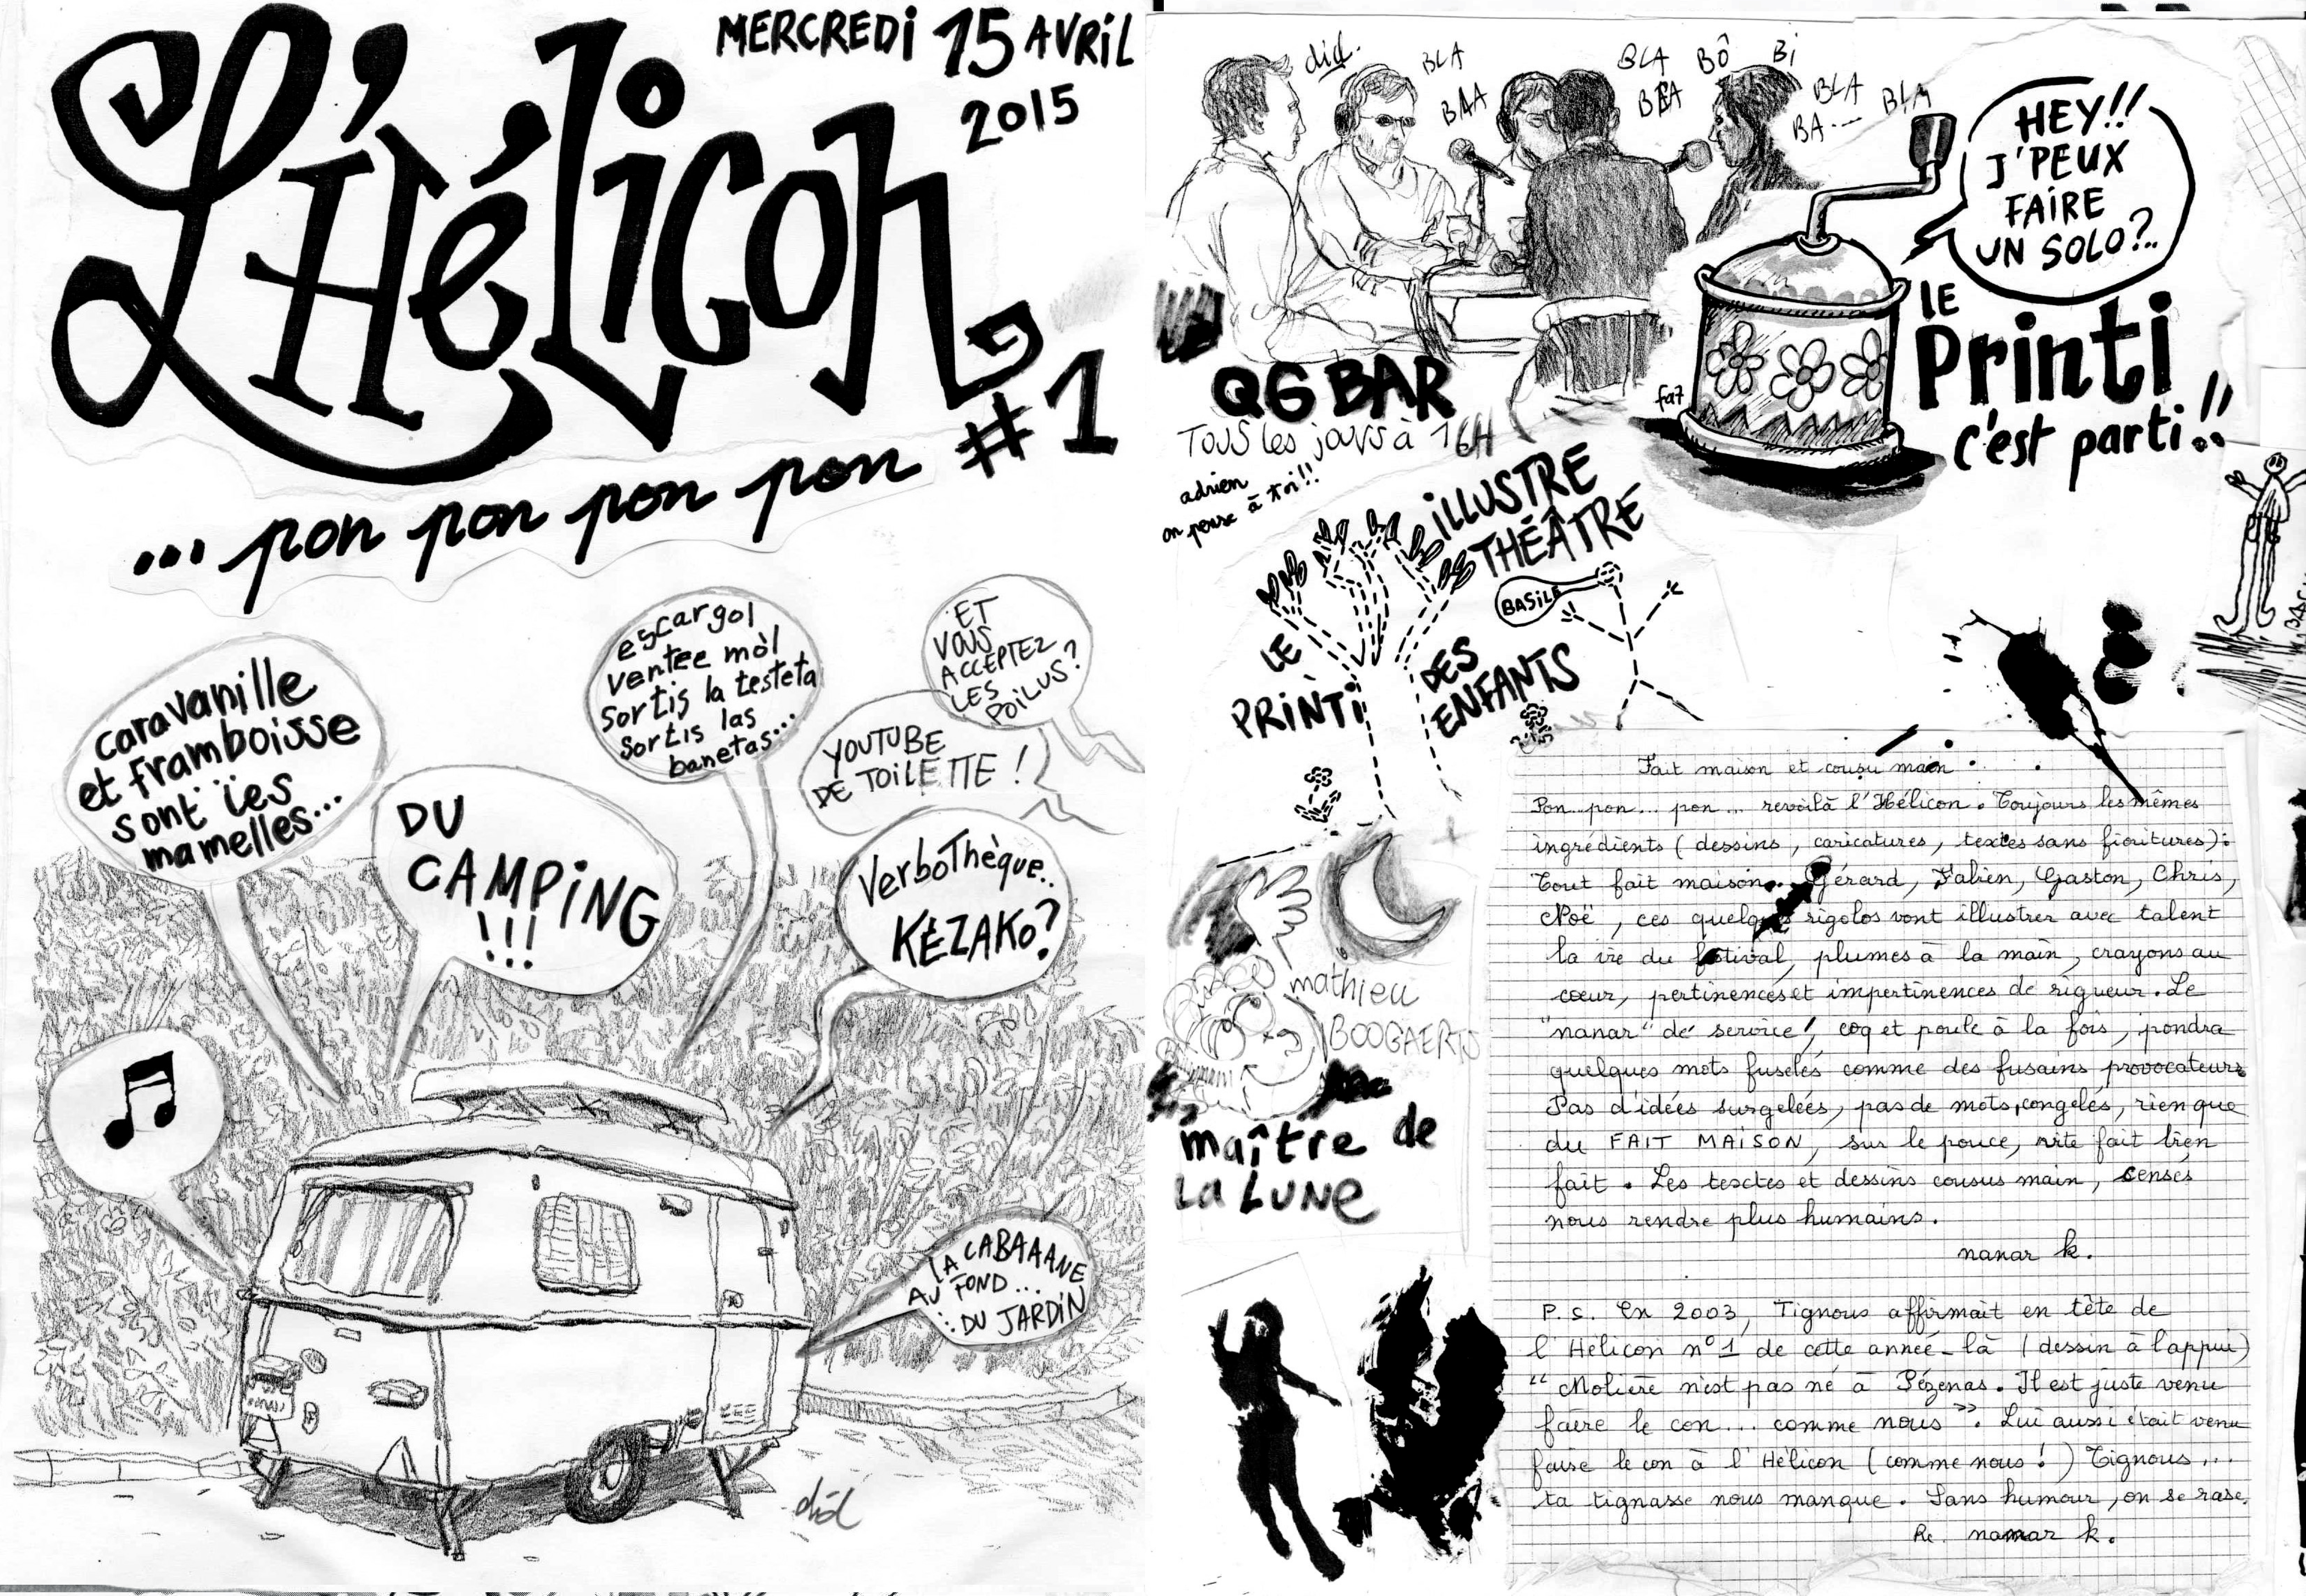 MERCREDI 15 AVRIL
2015
L'Hélicon
#1
... pon pon pon pon
caravanille
et framboisse
sont ïes
mamelles...
DU
CAMPING
!!!
escargol
ventee mòl
sortis la testeta
sortis las
banetas...
ET
VOUS
ACCEPTEZ
LES
POILUS?
YOUTUBE
DE TOILETTE !
VerboThèque..
KÉZAKO?
LA CABAAANE
AU FOND...
: DU JARDIN
did
did.
BLA
BLA
BLA
BLA
BÔ
Bi
BLA
BA...
BLA
HEY!!
J'PEUX
FAIRE
UN SOLO?..
LE
Printi
c'est parti!!
fa7
QG BAR
TOUS les jours à 16H
adrien
on pense à toi!!
iLLUSTRE
THÉÂTRE
BASILE
LE
PRINTI
DES
ENFANTS
mathieu
BOOGAERTS
maître de
La LUNE
Fait maison et cousu main
Pon pon... pon... revoilà l'Hélicon. Toujours les mêmes
ingrédients (dessins, caricatures, textes sans fioritures):
tout fait maison. Gérard, Fabien, Gaston, Chris,
Noë, ces quelques rigolos vont illustrer avec talent
la vie du festival, plumes à la main, crayons au
cœur, pertinences et impertinences de rigueur. Le
"nanar" de service, coq et poule à la fois, pondra
quelques mots fuselés comme des fusains provocateurs
Pas d'idées surgelées, pas de mots congelés, rien que
du FAIT MAISON, sur le pouce, vite fait bien
fait. Les textes et dessins cousus main, censés
nous rendre plus humains.
nanar k.
P.S. En 2003, Tignous affirmait en tête de
l'Hélicon n°1 de cette année-là (dessin à l'appui)
"Molière n'est pas né à Pézenas. Il est juste venu
faire le con... comme nous". Lui aussi était venu
faire le con à l'Hélicon (comme nous!) Tignous...
ta tignasse nous manque. Sans humour, on se rase.
Re. nanar k.